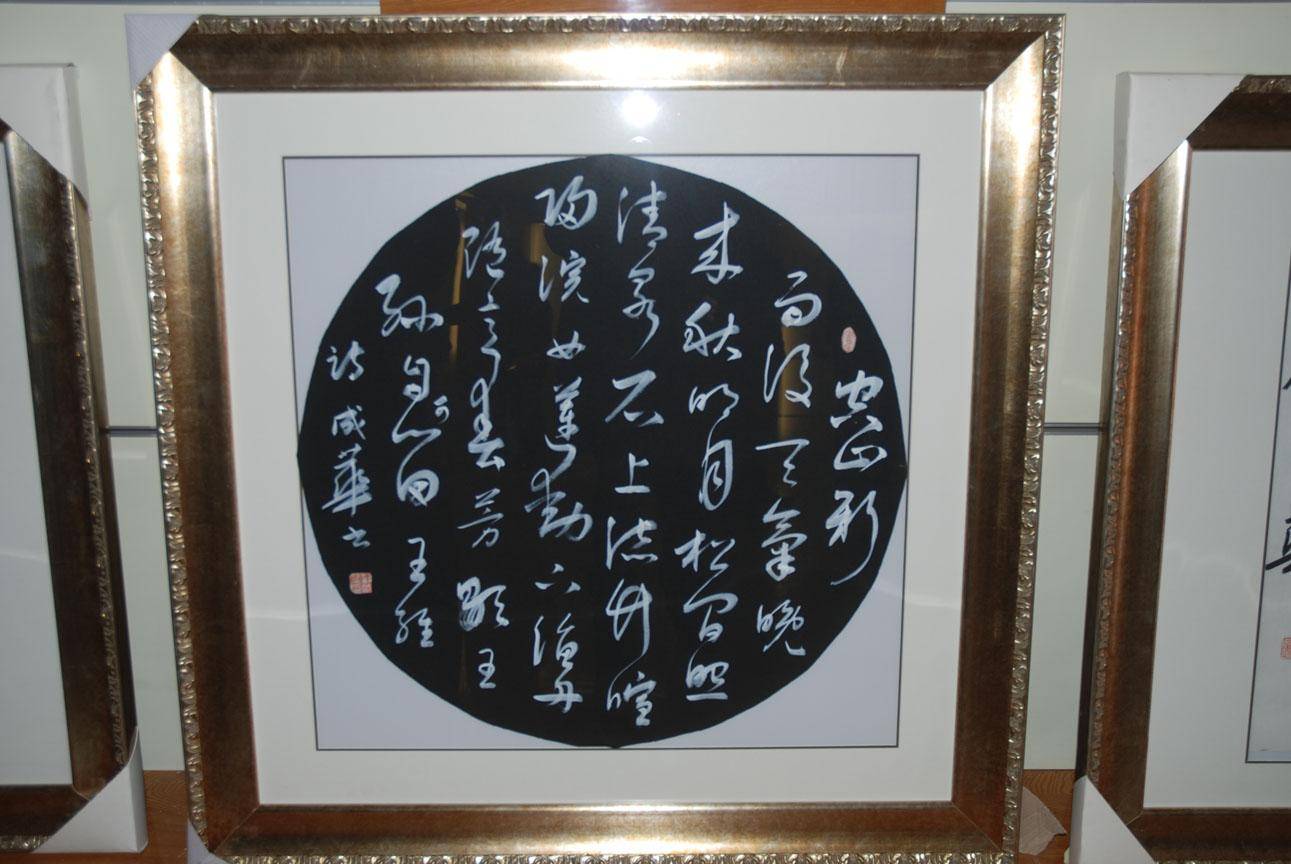 空山新
雨後天氣晚
来秋明月松間照
清泉石上流竹喧
歸浣女蓮動下漁舟
隨意春芳歇王
孫自可留王維
詩成華书